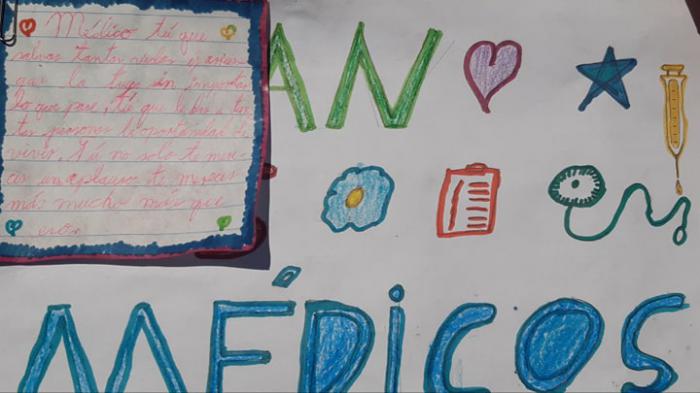 Médico tú que
salvas tantas vidas
la tuya sin importar
lo que pase, tú que le das a tan
tas personas la oportunidad de
vivir. Tú no solo te mere-
ces un aplauso te mereces
más mucho más que
eso.
AN
MÉDICOS